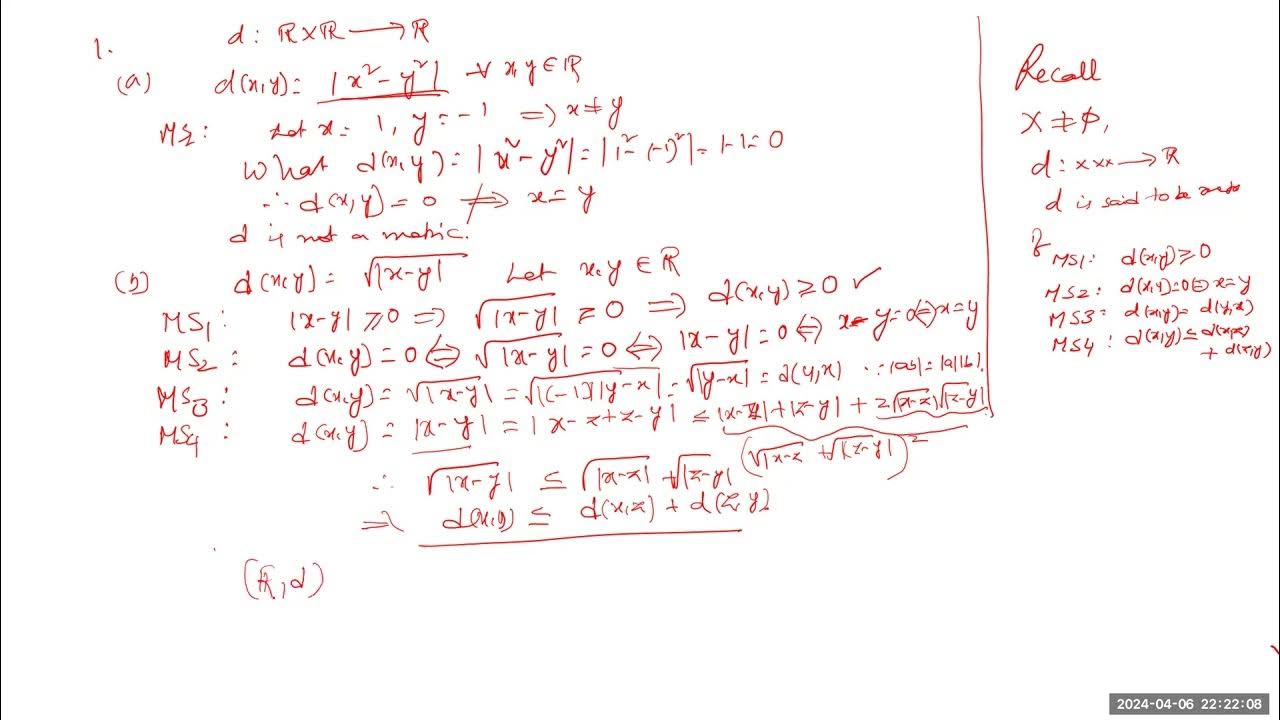 1. d: ℝ×ℝ → ℝ
(a) d(x,y) = |x² - y²| ∀ x, y ∈ ℝ
MS2: Let x = 1, y = -1 ⇒ x ≠ y
What d(x,y) = |x² - y²| = |1² - (-1)²| = 1-1 = 0
∴ d(x,y) = 0 ⇏ x = y
d is not a metric.
(b) d(x,y) = √|x-y| Let x, y ∈ ℝ
MS1: |x-y| ≥ 0 ⇒ √|x-y| ≥ 0 ⇒ d(x,y) ≥ 0 ✓
MS2: d(x,y) = 0 ⇔ √|x-y| = 0 ⇔ |x-y| = 0 ⇔ x-y = 0 ⇔ x = y
MS3: d(x,y) = √|x-y| = √|(-1)||y-x| = √|y-x| = d(y,x) ∵ |ab| = |a||b|
MS4: d(x,y) = |x-y| = |x-z+z-y| ≤ |x-z| + |z-y| + 2√|x-z|√|z-y|
(√|x-z + √|z-y|)²
∴ √|x-y| ≤ √|x-z| + √|z-y|
⇒ d(x,y) ≤ d(x,z) + d(z,y)
(ℝ, d)
Recall
X ≠ φ,
d: X×X → ℝ
d is said to be
if
MS1: d(x,y) ≥ 0
MS2: d(x,y) = 0 ⇔ x = y
MS3: d(x,y) = d(y,x)
MS4: d(x,y) ≤ d(x,z)
+ d(z,y)
2024-04-06 22:22:08